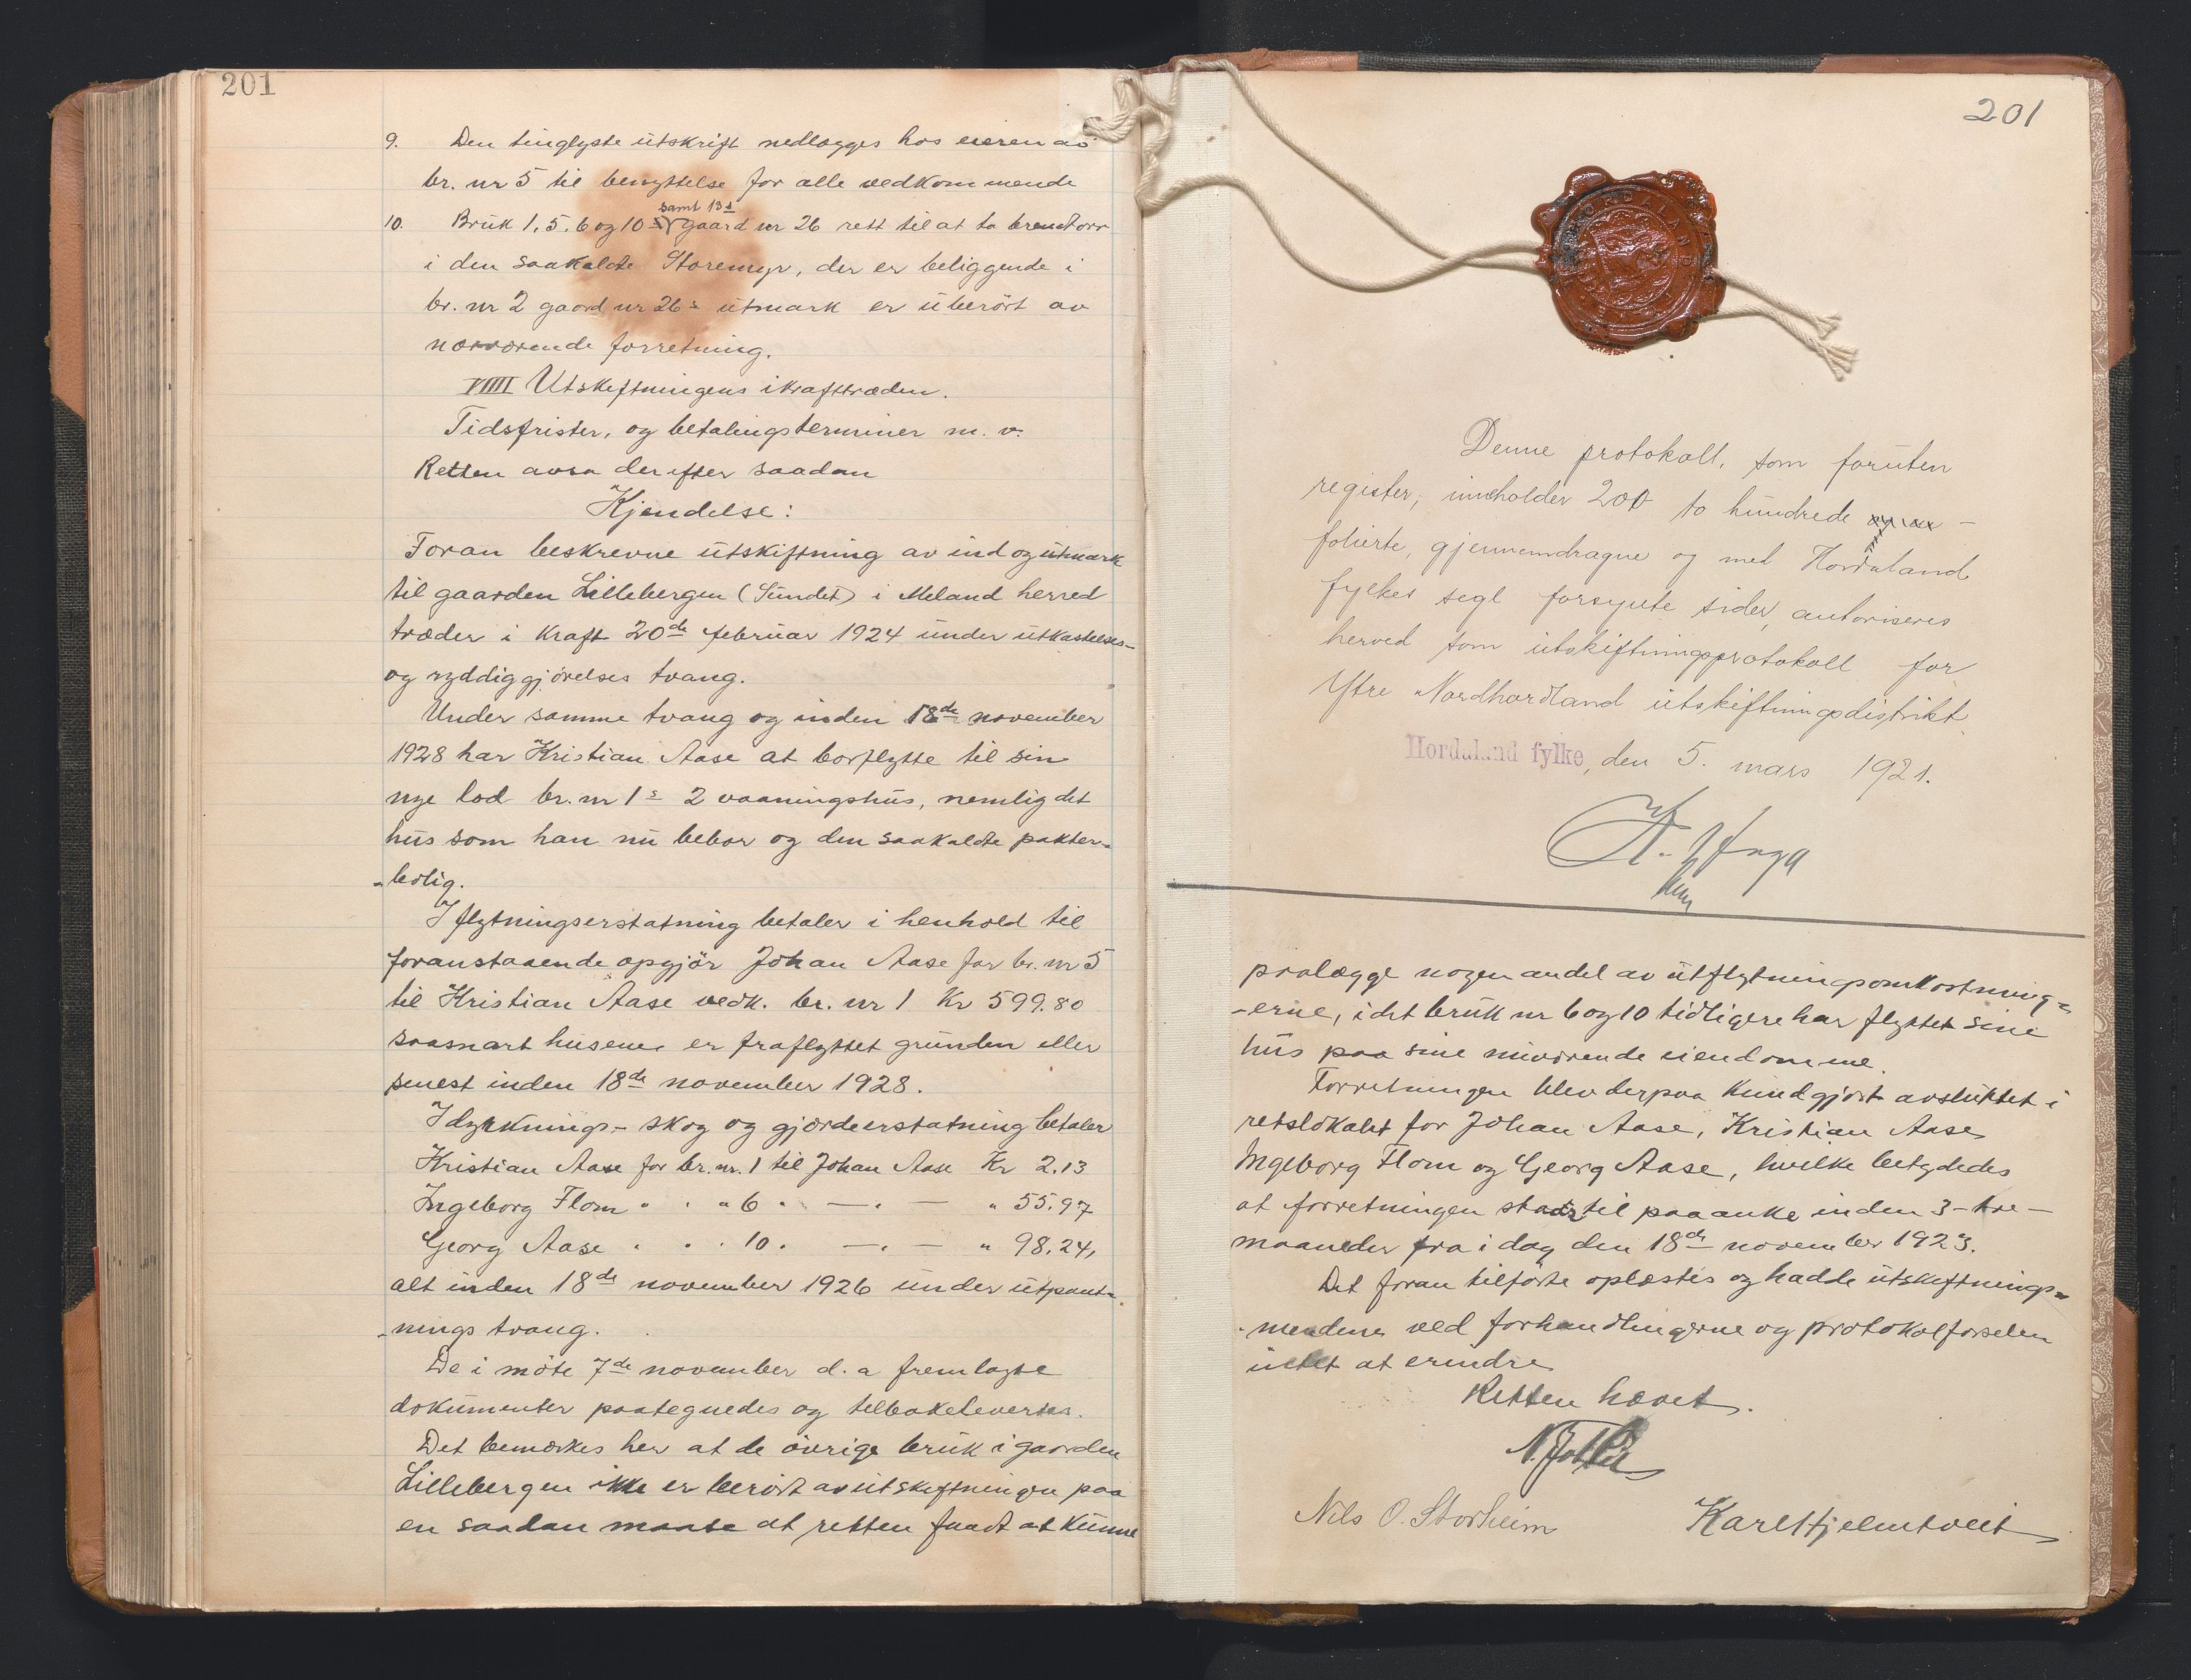 201
9. Den tinglyste utskrift nedlægges hos eieren av
br. nr 5 til benyttelse for alle vedkommende
samt 13s
10. Bruk 1, 5, 6 og 10 gaard nr 26 rett til at ta brendtorv
i den saakaldte Storemyr, der er beliggende i
br. nr 2 gaard nr 26s utmark er uberört av
nærværende forretning.
VIIII Utskiftningens ikrafttræden.
Tidsfrister, og betalingsterminer m. v.
Retten avsa derefter saadan
Kjendelse:
Foran beskrevne utskiftning av ind og utmark
til gaarden Lillebergen (Sundet) i Meland herred
træder i kraft 20de februar 1924 under utkastelses-
og ryddiggjörelses tvang.
Under samme tvang og inden 18de november
1928 har Kristian Aase at borflytte til sin
nye lod br. nr 1s 2 vaaningshus, nemlig det
hus som han nu bebor og den saakaldte pakter-
-bolig.
I flytningserstatning betaler i henhold til
foranstaaende opgjör Johan Aase for br. nr 5
til Kristian Aase vedk. br. nr 1 Kr 599.80
saasnart husene er fraflyttet grunden eller
senest inden 18de november 1928.
I dyrknings- skog og gjærdeerstatning betaler
Kristian Aase for br. nr. 1 til Johan Aase Kr 2.13
Ingeborg Flom " " " 6 " — " — " 55.97
Georg Aase " " " 10 " — " — " 98.24,
alt inden 18de november 1926 under utpant-
-nings tvang.
De i möte 7de november d. a fremlagte
dokumenter paategnedes og tilbakeleveres.
Det bemærkes her at de övrige bruk i gaarden
Lillebergen ikke er berört av utskiftningen paa
en saadan maate at retten fandt at kunne
201
Denne protokoll, som foruten
register, inneholder 200 to hundrede
folierte, gjennemdragne og med Hordaland
fylkes segl forsynte sider, autoriseres
herved som utskiftningsprotokoll for
Ytre Nordhordland utskiftningsdistrikt.
Hordaland fylke, den 5. mars 1921.
HORDALAND
paalægge nogen andel av utflytningsomkostning-
-erne, idet bruk nr 6 og 10 tidligere har flyttet sine
hus paa sine nuværende eiendomme.
Forretningen blev derpaa kundgjort avsluttet i
retslokalet for Johan Aase, Kristian Aase,
Ingeborg Flom og Georg Aase, hvilke betydedes
at forretningen staar til paaanke inden 3 - tre -
maaneder fra i dag den 18de november 1923.
Det foran tilförte oplæstes og hadde utskiftnings-
-mændene ved forhandlingerne og protokolförselen
intet at erindre
Retten hævet.
Nils O. Storheim Karl Hjelmtveit